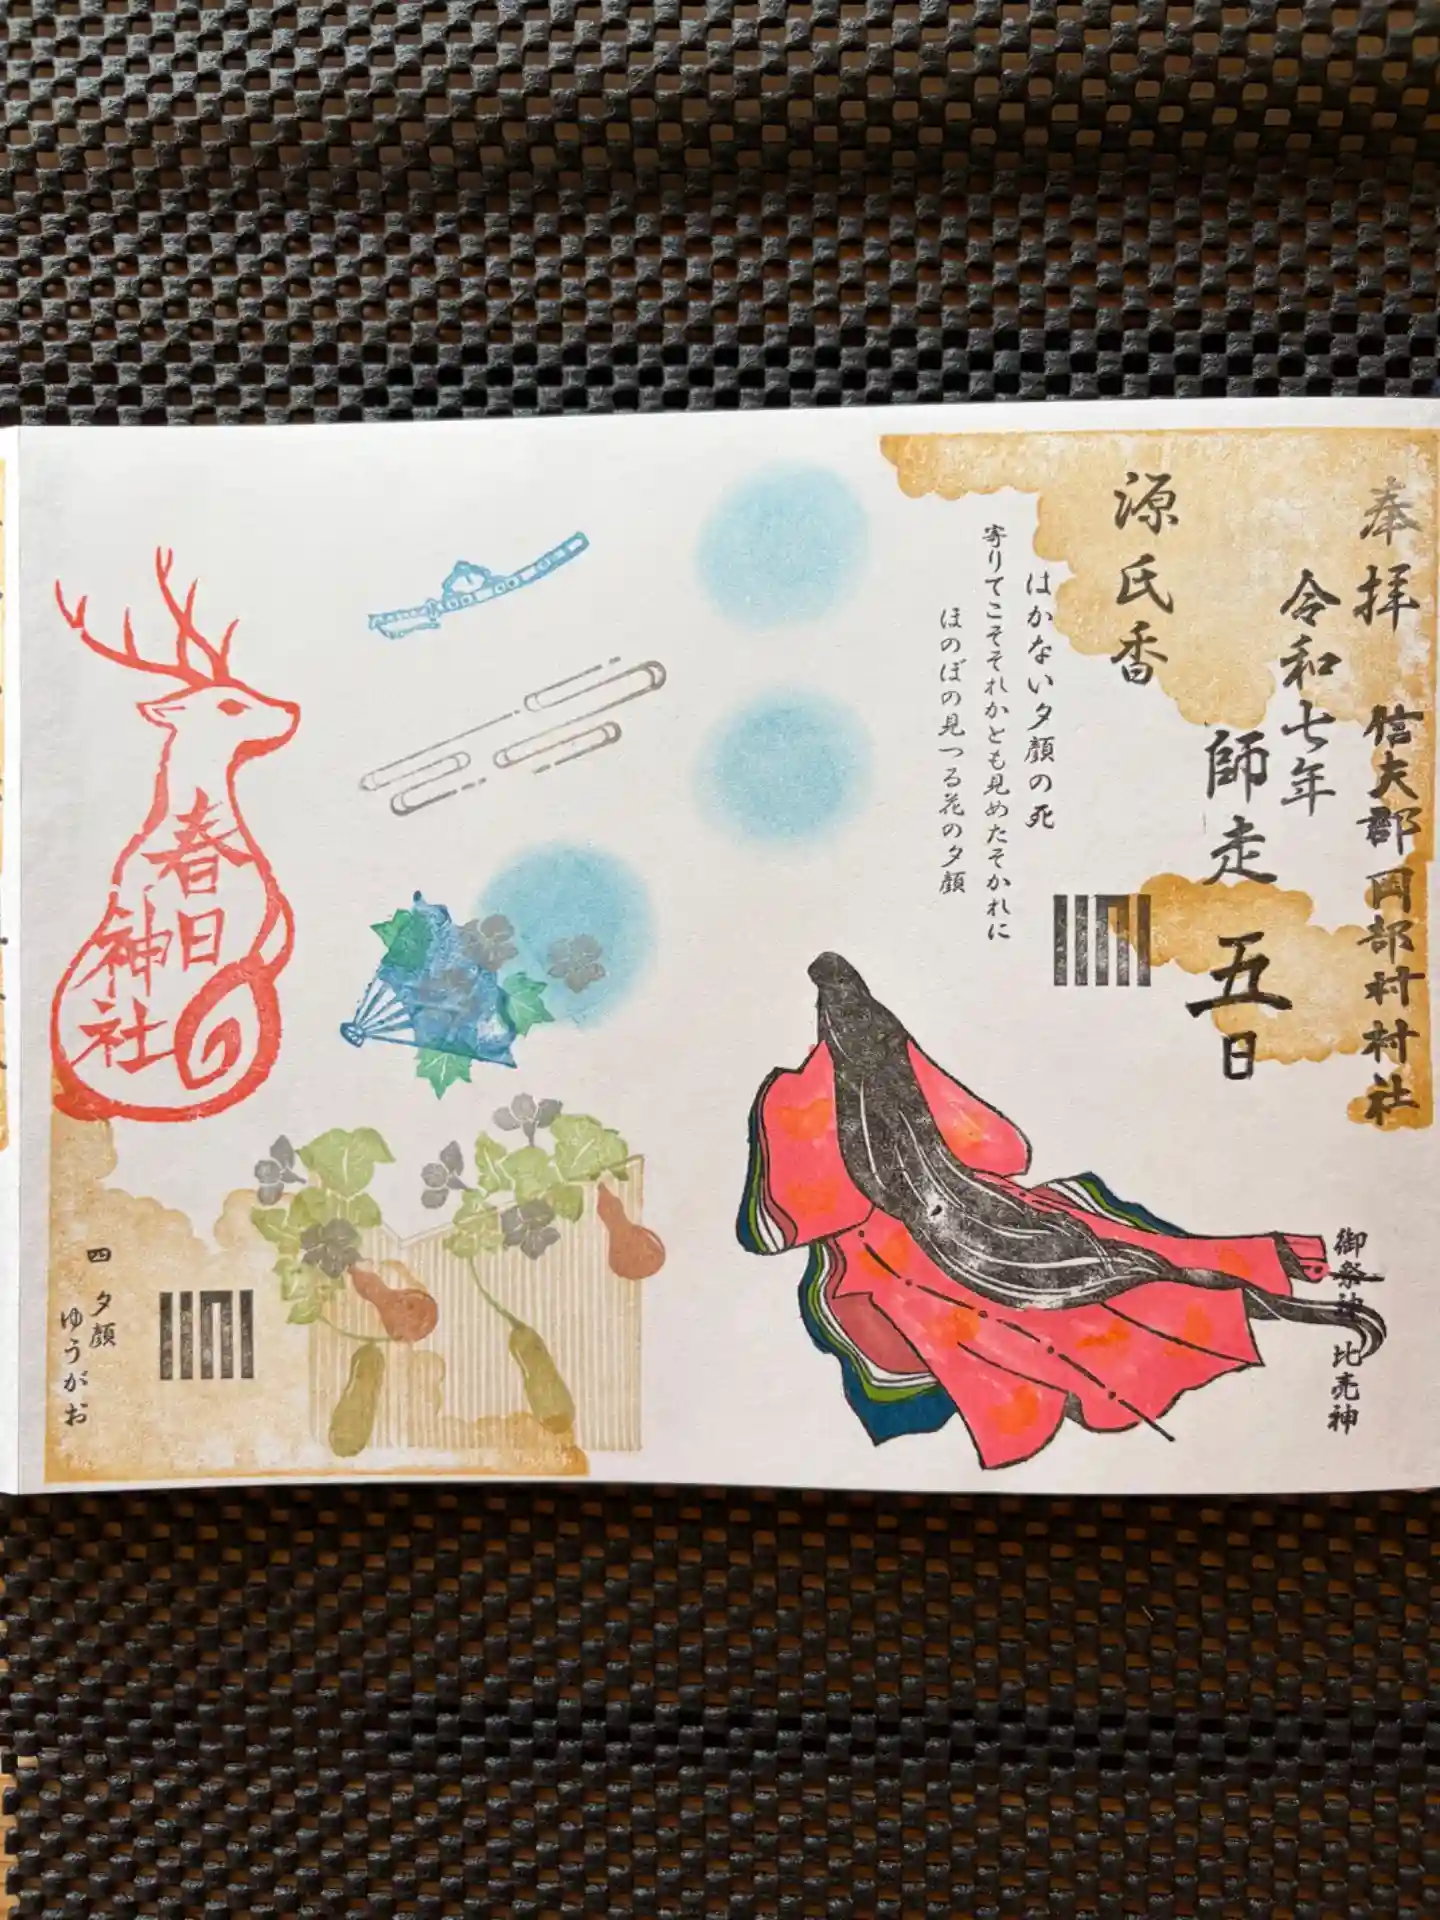 奉拝
信夫郡岡部村村社
令和七年
師走
五日
源氏香
はかない夕顔の死
寄りてこそそれかとも見めたそかれに
ほのぼの見つる花の夕顔
御祭神 比売神
春日
神社
四 夕顔
ゆうがお